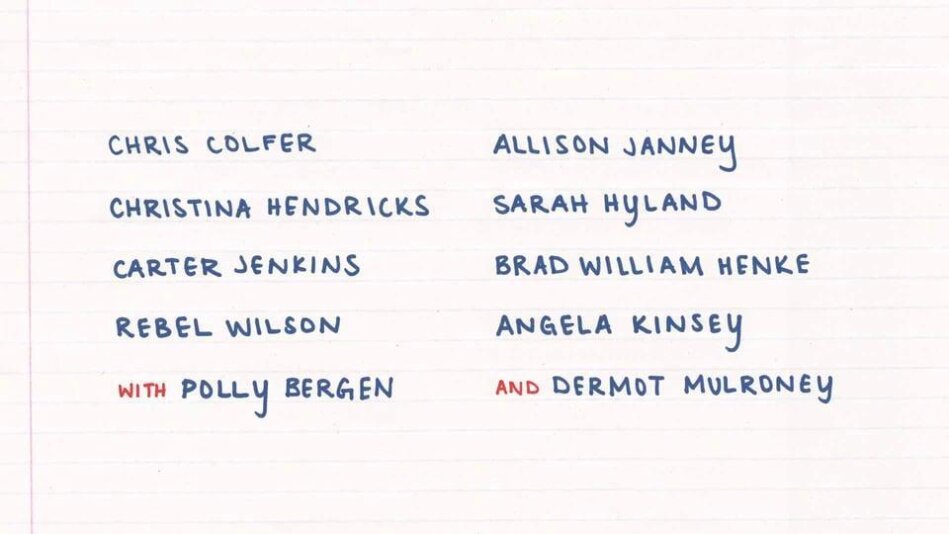 CHRIS COLFER
ALLISON JANNEY
CHRISTINA HENDRICKS
SARAH HYLAND
CARTER JENKINS
BRAD WILLIAM HENKE
REBEL WILSON
ANGELA KINSEY
WITH POLLY BERGEN
AND DERMOT MULRONEY